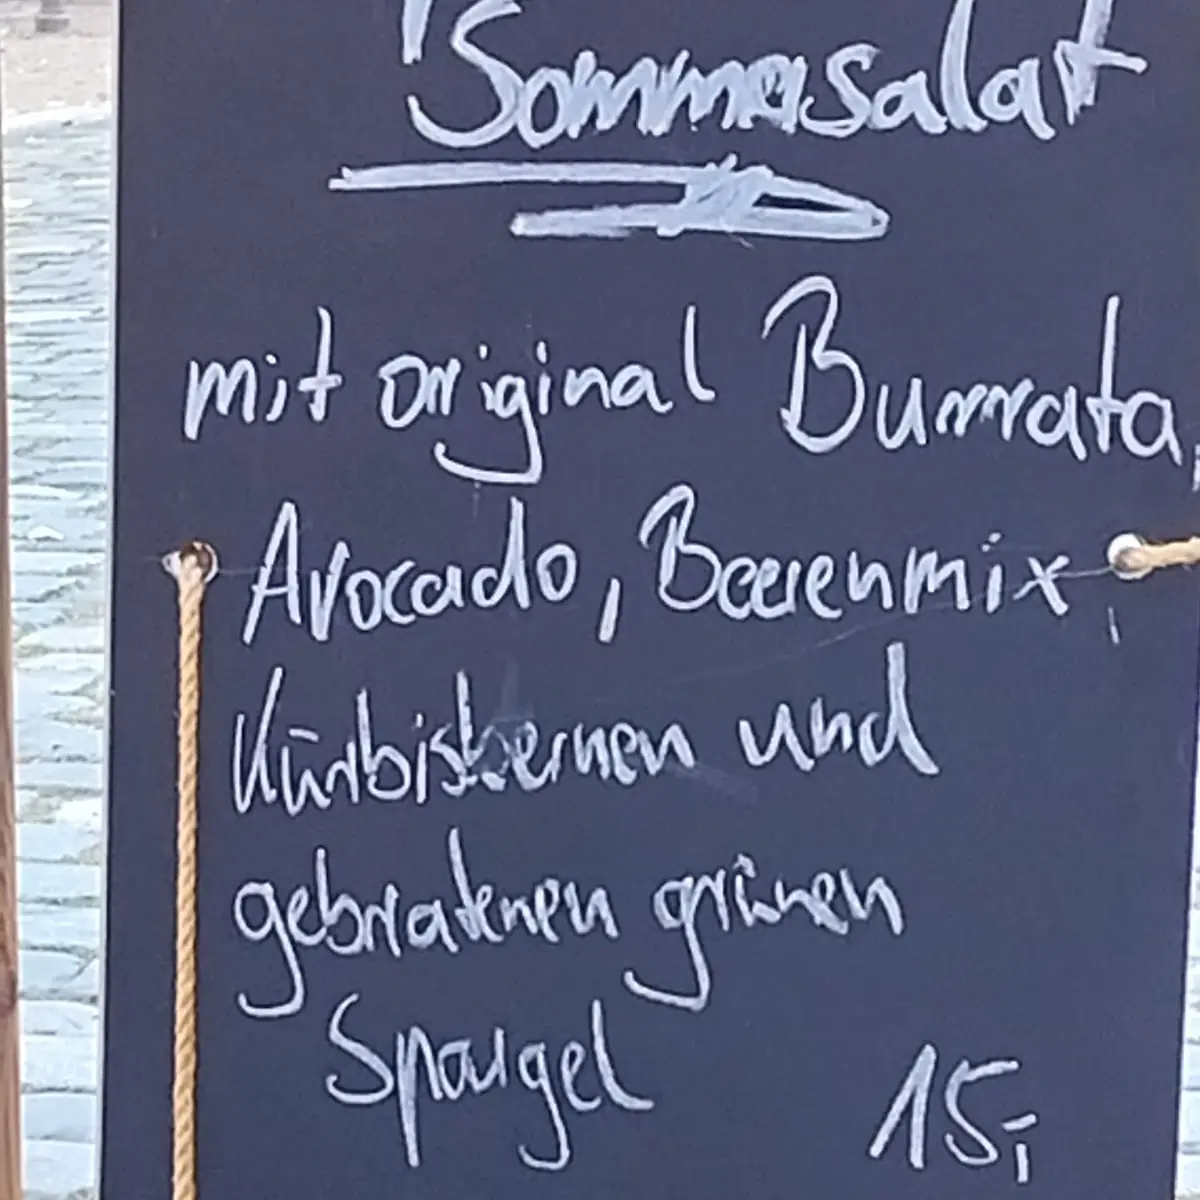 Sommersalat
mit original Burrata,
Avocado, Beerenmix,
Kürbiskernen und
gebratenen grünen
Spargel 15,-